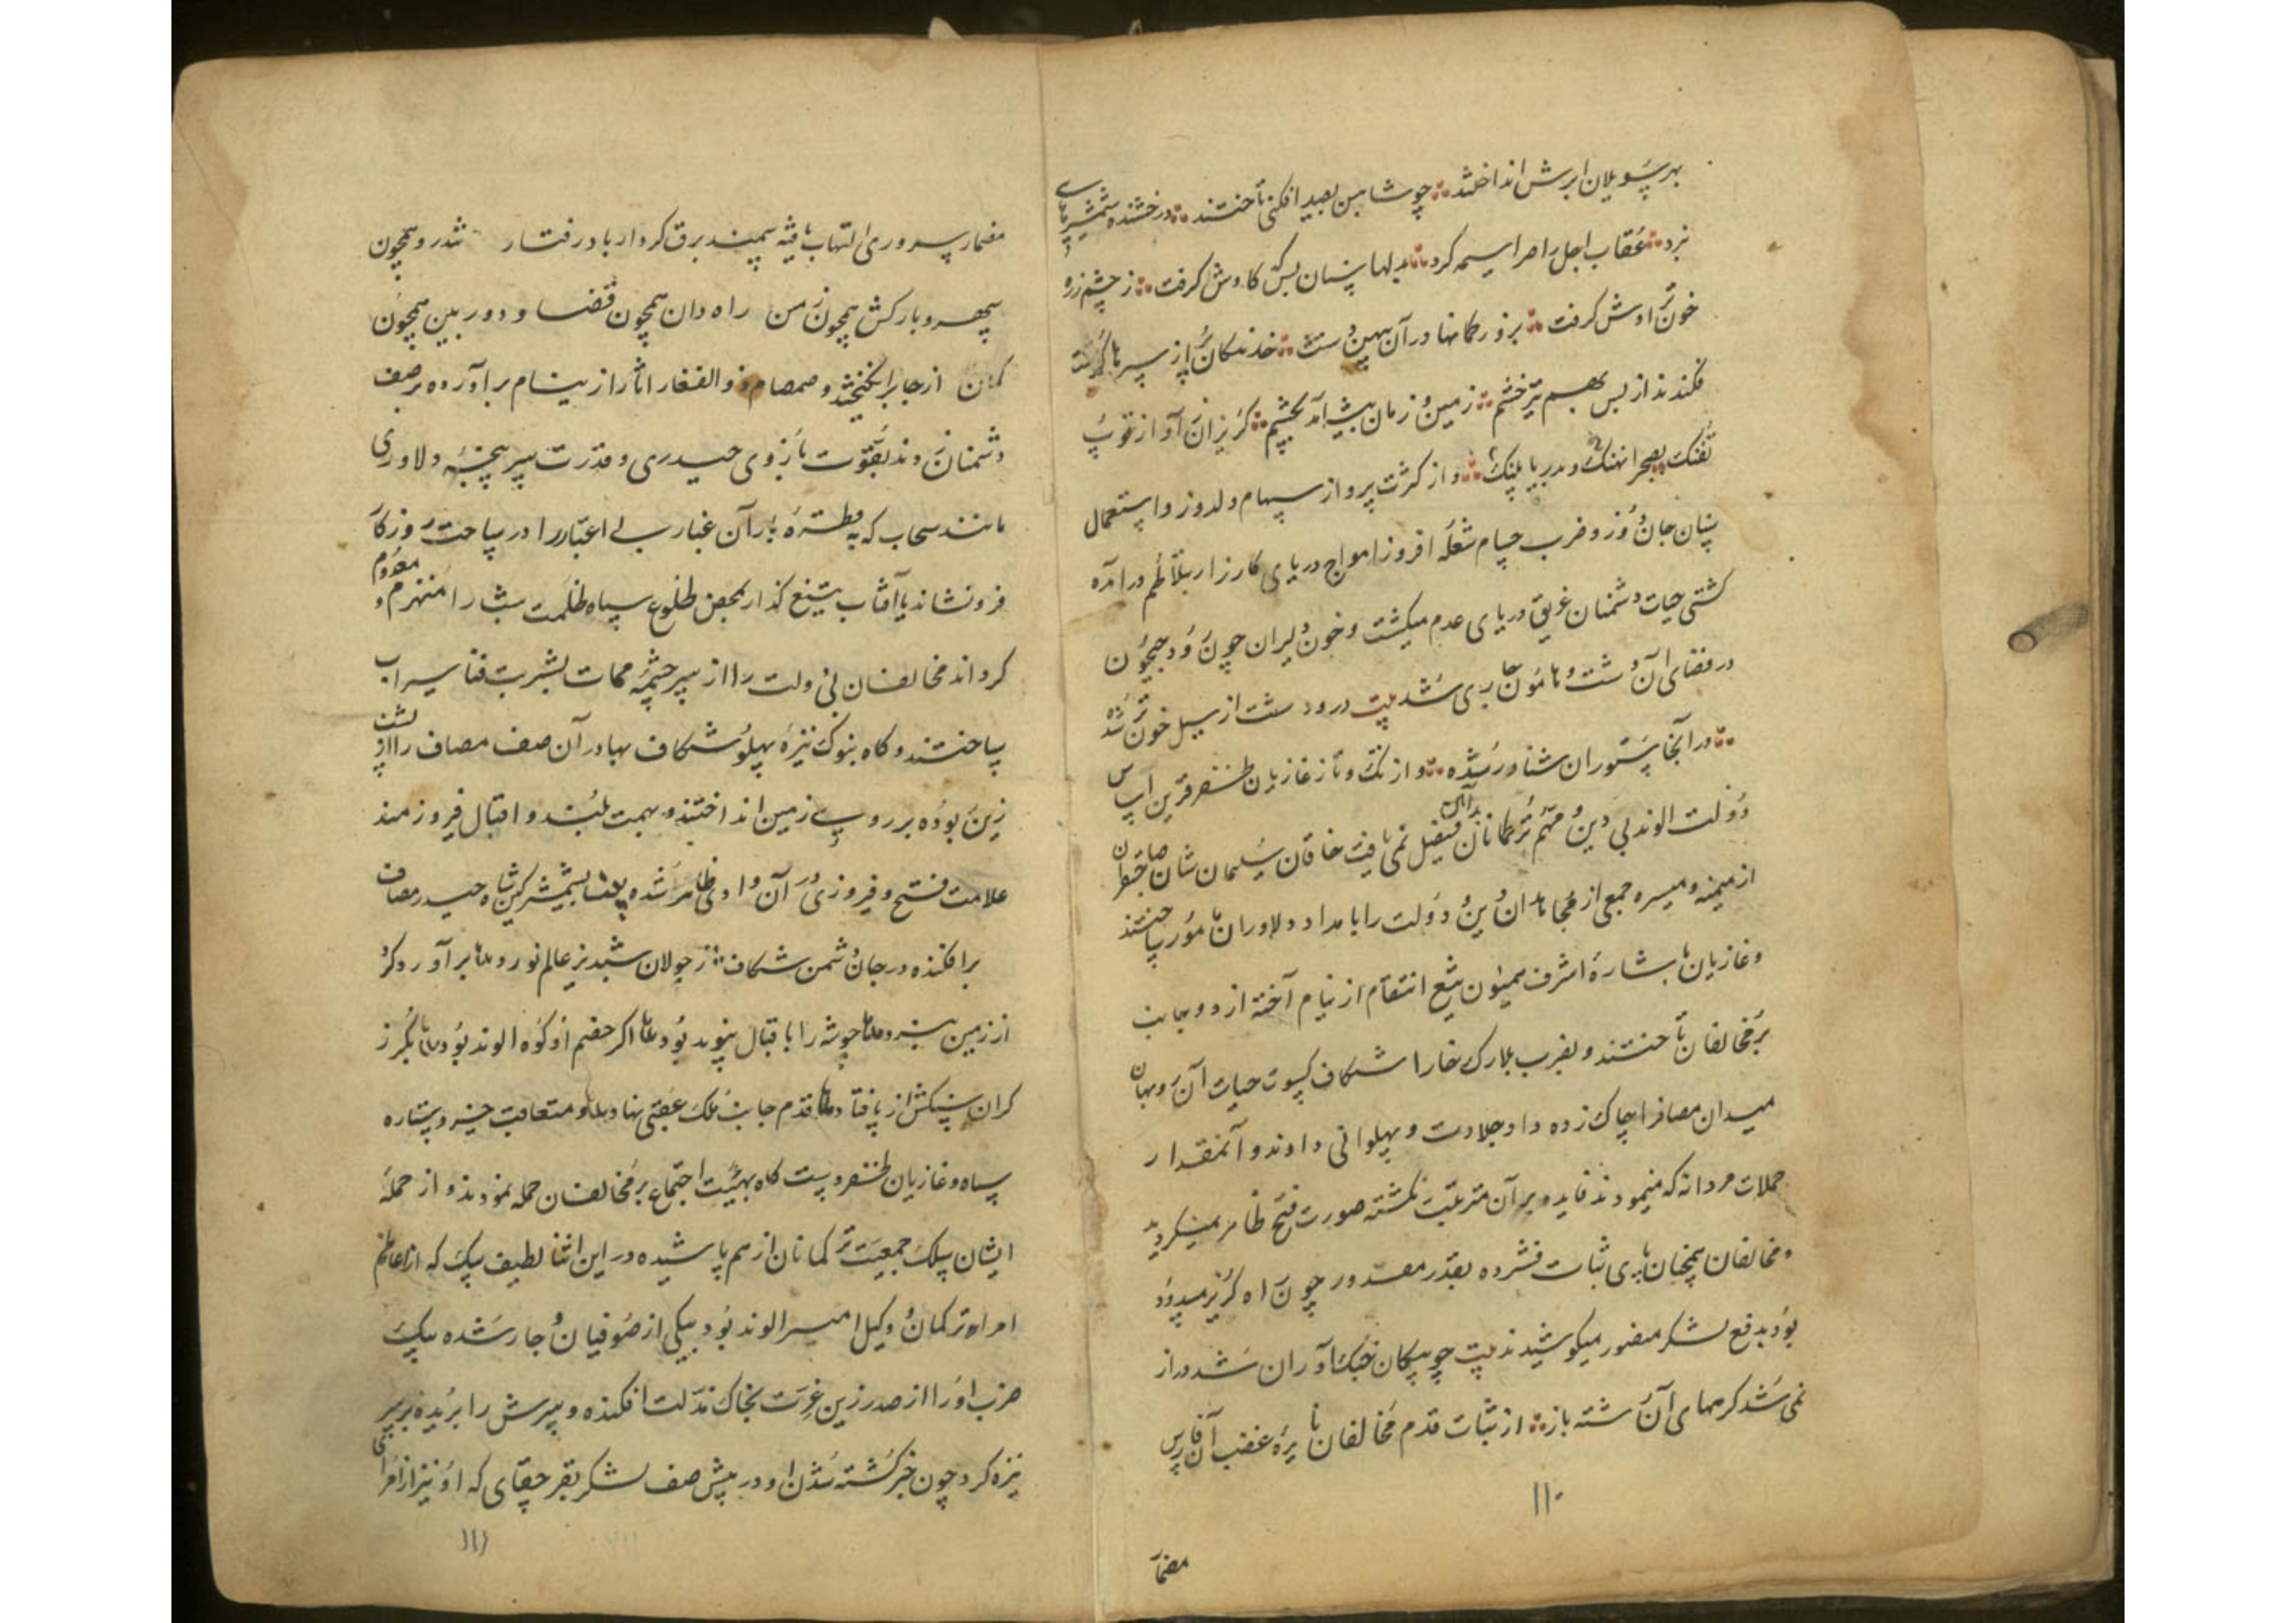 بهر سو یلان ابرش انداختند ❊ چو شاهین بصید افکنی تاختند ❊ درخشنده شمشیرهای
نبرد ❊ عقاب اجل را سراسیمه کرد ❊ بدلها سنان بسکه کاوش گرفت ❊ ز چشم زره
خون تراوش گرفت ❊ بزور کمانها در آن پهن دشت ❊ خدنگان پر از سپرها گذشت
فکندند از بس بهم تیر خشم ❊ زمین و زمان بیشه آمد بچشم ❊ گریزان ز آواز توپ
تفنک بصحرا نهنک و بدریا پلنک ❊ و از کثرت پرواز سهام دلدوز و استعمال
سنان جان دوز و ضرب حسام شعله افروز امواج دریای کارزار بتلاطم درآمده
کشتی حیات دشمنان غریق دریای عدم میکشت و خون دلیران چون رود جیحون
در فضای آن دشت و هامون جاری شد بیت در و دشت از سیل خون تر شده
❊ در آنجا ستوران شناور شده ❊ و از تک و تاز غازیان ظفر قرین اساس
دولت الوند بی دین و مهم ترکمانان بدآئین فیصل نمی یافت خاقان سلیمان شان صاحبقران
از میمنه و میسره جمعی از مجاهدان دین و دولت را بامداد دلاوران مامور ساختند
و غازیان باشارهٔ اشرف همیون تیغ انتقام از نیام آخته از دو جانب
بر مخالفان تاختند و بضرب بلارک خارا شکاف کسوت حیات آن روبهان
میدان مصاف را چاک زده داد جلادت و پهلوانی دادند و آنمقدار
حملات مردانه که مینمودند فایده بر آن مترتب نکشته صورت فتح ظاهر نمیکردید
و مخالفان همچنان پای ثبات فشرده بقدر مقدور چون راه گریز مسدود
بود بدفع لشکر منصور میکوشیدند بیت چو پیکان جنک آوران شد دراز
نمی شد کره های آن رشته باز ❊ از ثبات قدم مخالفان نایرهٔ غضب آن فارس
۱۱۰
مضمار
مضمار سروری التهاب یافته سمند برق کردار باد رفتار تندرو همچون
سپهر و بارکش همچون زمن راه دان همچون قضا و دوربین همچون
کمان از جا برانگیختند و صمصام ذوالفقار آثار از نیام برآورده بر صف
دشمنان زدند بقوت بازوی حیدری و قدرت سرپنجهٔ دلاوری
مانند سحاب که بقطرهٔ باران غبار بی اعتبار را در ساحت روزگار
فرو نشاند یا آفتاب تیغ گذار بمحض طلوع سپاه ظلمت شب را منهزم و معدوم
کرداند مخالفان دولت را از سرچشمهٔ ممات بشربت فنا سیراب
ساختند و کاه بنوک نیزهٔ پهلو شکاف بهادر آن صف مصاف را از پشت
زین ربوده بر روی زمین انداختند و بهمت بلند و اقبال فیروزمند
علامت فتح و فیروزی در آن وادی ظاهر شده بشمشیر کین شاه حیدر مصاف
برافکنده در جان دشمن شکاف ❊ ز جولان شبدیز عالم نورد برآورد کرد
از زمین نبرد چو شه را باقبال پیوند بود اگر خصم او کوه الوند بود بگرز
کران سنکش از پا فتاد قدم جانب ملک عقبی نهاد و متعاقب خسرو ستاره
سپاه و غازیان ظفر دستگاه بهیئت اجتماع بر مخالفان حمله نمودند و از حملهٔ
ایشان سلک جمعیت ترکمانان از هم پاشیده در این اثنا لطیف بیک که از اعاظم
امراء ترکمان و وکیل امیر الوند بود بیکی از صوفیان دچار شده بیک
ضرب او را از صدر زین عزت بخاک مذلت افکنده و سرش را بریده بر سر
نیزه کرد چون خبر کشته شدن او در پیش صف لشکر بقرحقای که او نیز از امرای
۱۱۱